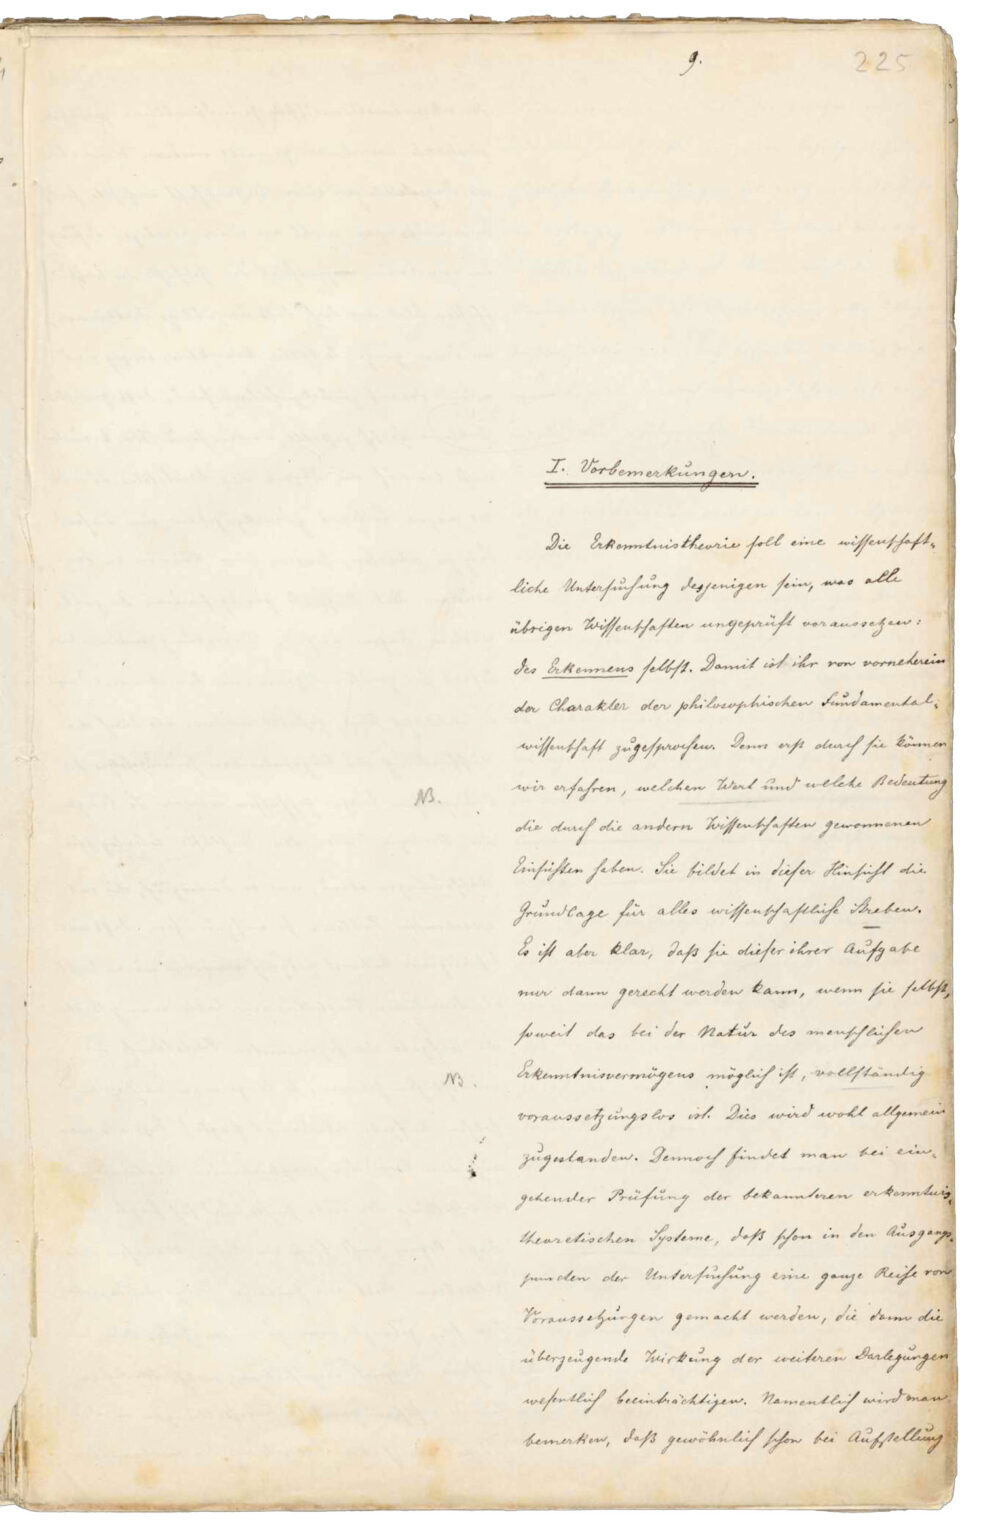 9.
225
I. Vorbemerkungen.
Die Erkenntnistheorie soll eine wissenschaft-
liche Untersuchung desjenigen sein, was alle
übrigen Wissenschaften ungeprüft voraussetzen:
des Erkennens selbst. Damit ist ihr von vorneherein
der Charakter der philosophischen Fundamental-
wissenschaft zugesprochen. Denn erst durch sie können
wir erfahren, welchen Wert und welche Bedeutung
NB.
die durch die andern Wissenschaften gewonnenen
Einsichten haben. Sie bildet in dieser Hinsicht die
Grundlage für alles wissenschaftliche Streben.
Es ist aber klar, daß sie dieser ihrer Aufgabe
nur dann gerecht werden kann, wenn sie selbst,
soweit das bei der Natur des menschlichen
Erkenntnisvermögens möglich ist, vollständig
NB.
voraussetzungslos ist. Dies wird wohl allgemein
zugestanden. Dennoch findet man bei ein-
gehender Prüfung der bekannteren erkenntnis-
theoretischen Systeme, daß schon in den Ausgangs-
punkten der Untersuchung eine ganze Reihe von
Voraussetzungen gemacht werden, die dann die
überzeugende Wirkung der weiteren Darlegungen
wesentlich beeinträchtigen. Namentlich wird man
bemerken, daß gewöhnlich schon bei Aufstellung